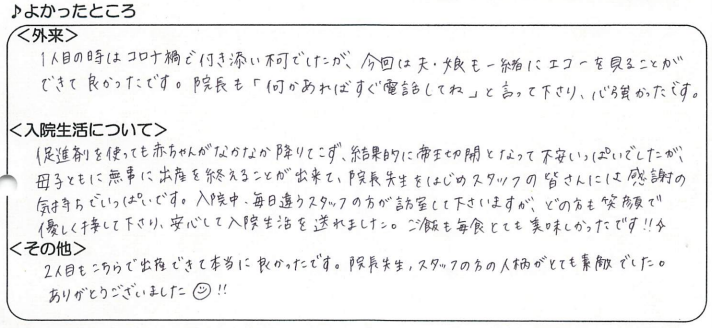 ♪よかったところ
＜外来＞
1人目の時はコロナ禍で付き添い不可でしたが、今回は夫・娘も一緒にエコーを見ることが
できて良かったです。院長も「何かあればすぐ電話してね」と言って下さり、心強かったです。
＜入院生活について＞
促進剤を使っても赤ちゃんがなかなか降りてこず、結果的に帝王切開となって不安いっぱいでしたが、
母子ともに無事に出産を終えることが出来て、院長先生をはじめスタッフの皆さんには感謝の
気持ちでいっぱいです。入院中、毎日違うスタッフの方が訪室して下さいますが、どの方も笑顔で
優しく接して下さり、安心して入院生活を送れました。ご飯も毎食とても美味しかったです!!
＜その他＞
2人目もこちらで出産できて本当に良かったです。院長先生,スタッフの方の人柄がとても素敵でした。
ありがとうございました☺!!